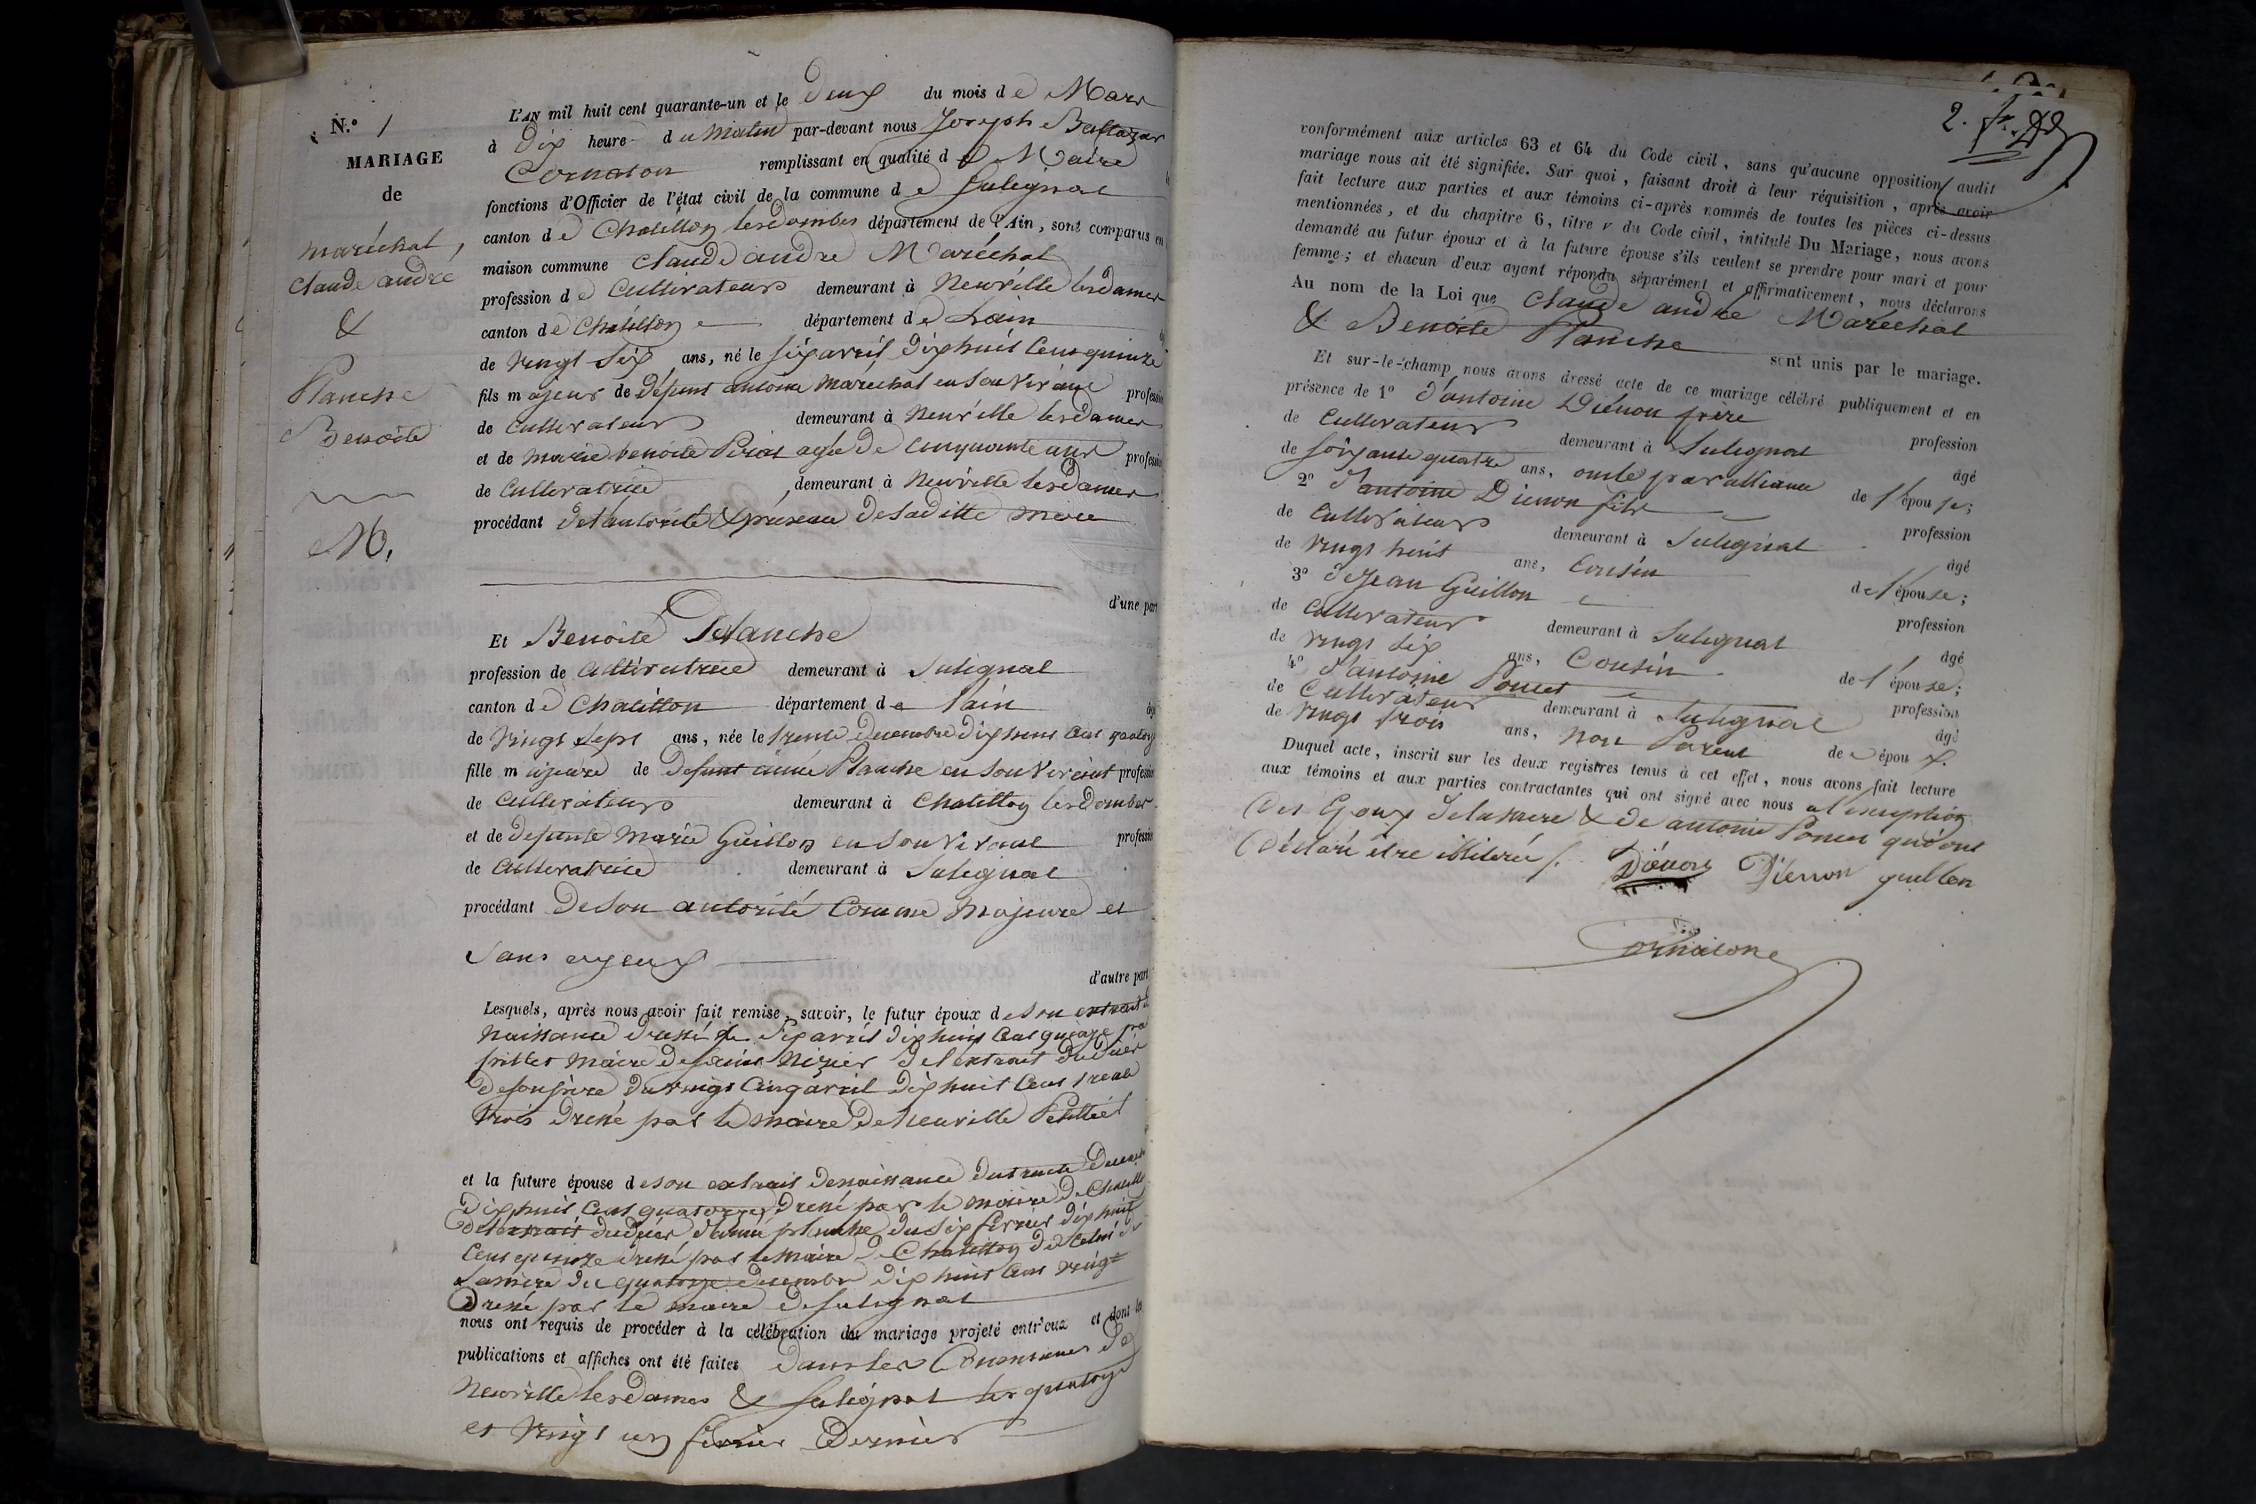 N.º 1
MARIAGE
de
maréchal
claude andré
&
Planche
Benoite
M.
L'AN mil huit cent quarante-un et le deux du mois de Mars
à dix heure du matin par-devant nous Joseph Baltazar
Cornaton remplissant en qualité de Maire
fonctions d'Officier de l'état civil de la commune de Sulignat
canton de Chatillon lesdombes département de l'Ain, sont comparus en
maison commune claude andre Maréchal
profession de Cultivateur demeurant à Neuville lesdames
canton de Chatillon département de Lain
de vingt six ans, né le six avril dixhuit cens quinze
fils majeur de défunt antoine maréchal en son vivant profession
de cultivateur demeurant à Neuville lesdames
et de marie benoite agée de cinquante ans profession
de Cultivatrice demeurant à Neuville lesdames
procédant de l'autorité & présence de sa ditte mere
d'une part
Et Benoite Planche
profession de cultivatrice demeurant à Sulignat
canton de Chatillon département de lain
de vingt sept ans, née le trente decembre dixhuit cens quatorze
fille majeure de defunt aimé Planche en son vivant profession
de cultivateur demeurant à Chatillon lesdombes
et de defunte marie Guillon en son vivant profession
de cultivatrice demeurant à Sulignat
procédant de son autorité comme majeure et
sans ayeux
d'autre part
Lesquels, après nous avoir fait remise, savoir, le futur époux de son extrait de
naissance dressé le six avril dixhuit cens quinze par
maire de saint Nizier de l'extrait du décès
de son père du vingt cinq avril dix huit cens trente
trois dressé par le maire de neuville
et la future épouse de son extrait de naissance du trente decembre
dixhuit cens quatorze dressé par le maire de Chatillon
de l'extrait du décès d'aimé planche du six fevrier dix huit
cens quinze dressé par le maire de Chatillon de celui de
sa mère du quatorze decembre dix huit cens vingt
dressé par le maire de sulignat
nous ont requis de procéder à la célébration du mariage projeté entr'eux et dont les
publications et affiches ont été faites dans les Communes de
neuville les dames & sulignat les quatorze
et vingt un fevrier dernier
2.
conformément aux articles 63 et 64 du Code civil, sans qu'aucune opposition audit
mariage nous ait été signifiée. Sur quoi, faisant droit à leur réquisition, après avoir
fait lecture aux parties et aux témoins ci-après nommés de toutes les pièces ci-dessus
mentionnées, et du chapitre 6, titre v du Code civil, intitulé Du Mariage, nous avons
demandé au futur époux et à la future épouse s'ils veulent se prendre pour mari et pour
femme; et chacun d'eux ayant répondu séparément et affirmativement, nous déclarons
Au nom de la Loi que claude andré Maréchal
& Benoite Planche sont unis par le mariage.
Et sur-le-champ nous avons dressé acte de ce mariage célébré publiquement et en
présence de 1º d'antoine Diénon père profession
de Cultivateur demeurant à Sulignat âgé
de soixante quatre ans, oncle par alliance de l'épouse;
2º d'antoine Dienon fils profession
de Cultivateur demeurant à Sulignat âgé
de vingt huit ans, Cousin de l'épouse;
3º de Jean Guillon profession
de Cultivateur demeurant à Sulignat âgé
de vingt six ans, Cousin de l'épouse;
4º d'antoine Poncet profession
de Cultivateur demeurant à Sulignat âgé
de vingt trois ans, non Parent de époux.
Duquel acte, inscrit sur les deux registres tenus à cet effet, nous avons fait lecture
aux témoins et aux parties contractantes qui ont signé avec nous a l'exception
des Epoux de la mere & de antoine Poncet qui ont
déclaré etre illiteré
Diénon Diénon guillon
Cornaton